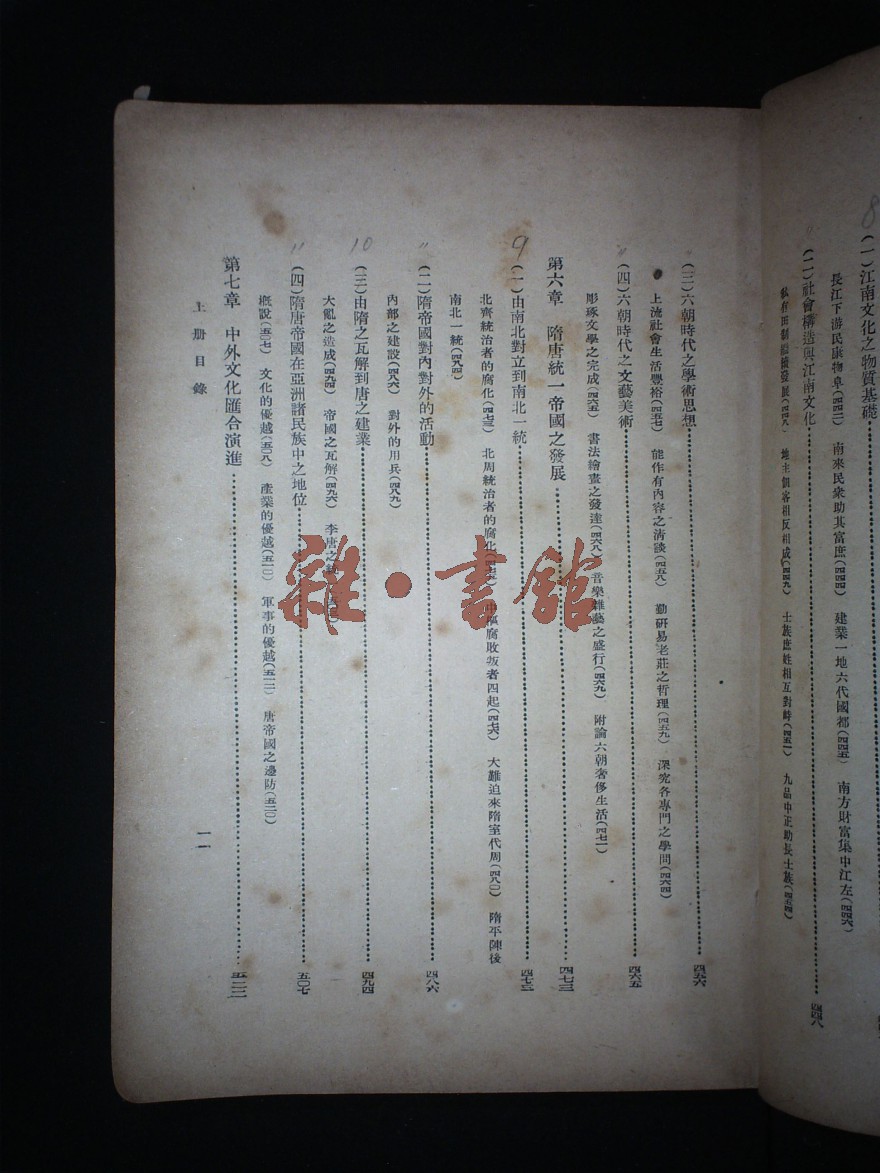 8
(一)江南文化之物質基礎
長江下游民康物阜(四四二) 南來民衆助其富庶(四四四) 建業一地六代國都(四四五) 南方財富集中江左(四四六)
(二)社會構造與江南文化……四四八
私有田制繼續發展(四四八) 地主佃客相反相成(四四九) 士族庶姓相互對峙(四五一) 九品中正助長士族(四五四)
(三)六朝時代之學術思想……四五六
上流社會生活豐裕(四五七) 能作有內容之清談(四五八) 勤研易老莊之哲理(四五九) 深究各專門之學問(四六四)
(四)六朝時代之文藝美術……四六五
彫琢文學之完成(四六五) 書法繪畫之發達(四六八) 音樂雜藝之盛行(四六九) 附論六朝奢侈生活(四七一)
第六章 隋唐統一帝國之發展……四七三
9
(一)由南北對立到南北一統……四七三
北齊統治者的腐化(四七三) 北周統治者的腐化(四七五) 中樞腐敗叛者四起(四七六) 大難迫來隋室代周(四八〇) 隋平陳後
南北一統(四八四)
"
(二)隋帝國對內對外的活動……四八六
內部之建設(四八六) 對外的用兵(四八九)
10
(三)由隋之瓦解到唐之建業……四九四
大亂之造成(四九四) 帝國之瓦解(四九六) 李唐之
"
(四)隋唐帝國在亞洲諸民族中之地位……五〇七
概說(五〇七) 文化的優越(五〇八) 產業的優越(五一〇) 軍事的優越(五一二) 唐帝國之邊防(五二〇)
第七章 中外文化匯合演進……五二二
上册目錄
一一
雜·書館